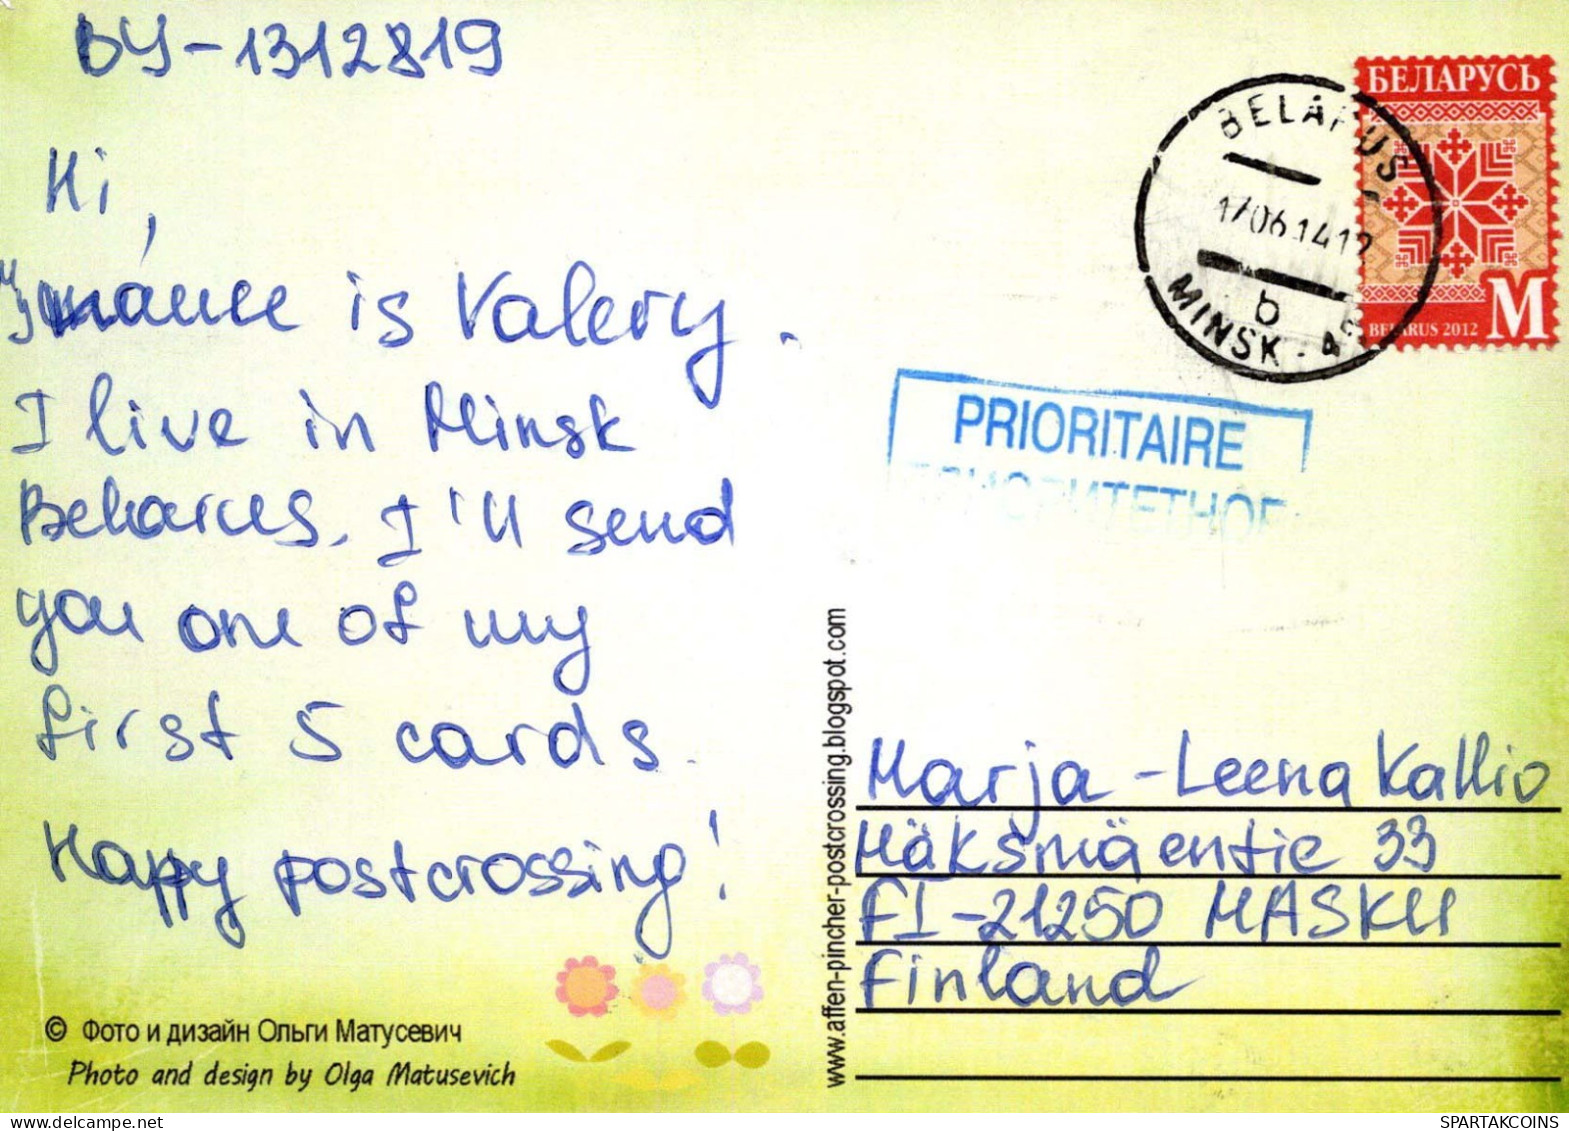 BY-1312819
Hi,
My name is Valery.
I live in Minsk
Belarus. I'll send
you one of my
first 5 cards.
Happy postcrossing!
© Фото и дизайн Ольги Матусевич
Photo and design by Olga Matusevich
www.affen-pincher-postcrossing.blogspot.com
БЕЛАРУСЬ
BELARUS 2012 M
BELARUS
17.06.14
b
MINSK
PRIORITAIRE
ПРИОРИТЕТНОЕ
Marja-Leena Kallio
Mäksmäentie 33
FI-21250 MASKU
Finland
SPARTAKCOINS